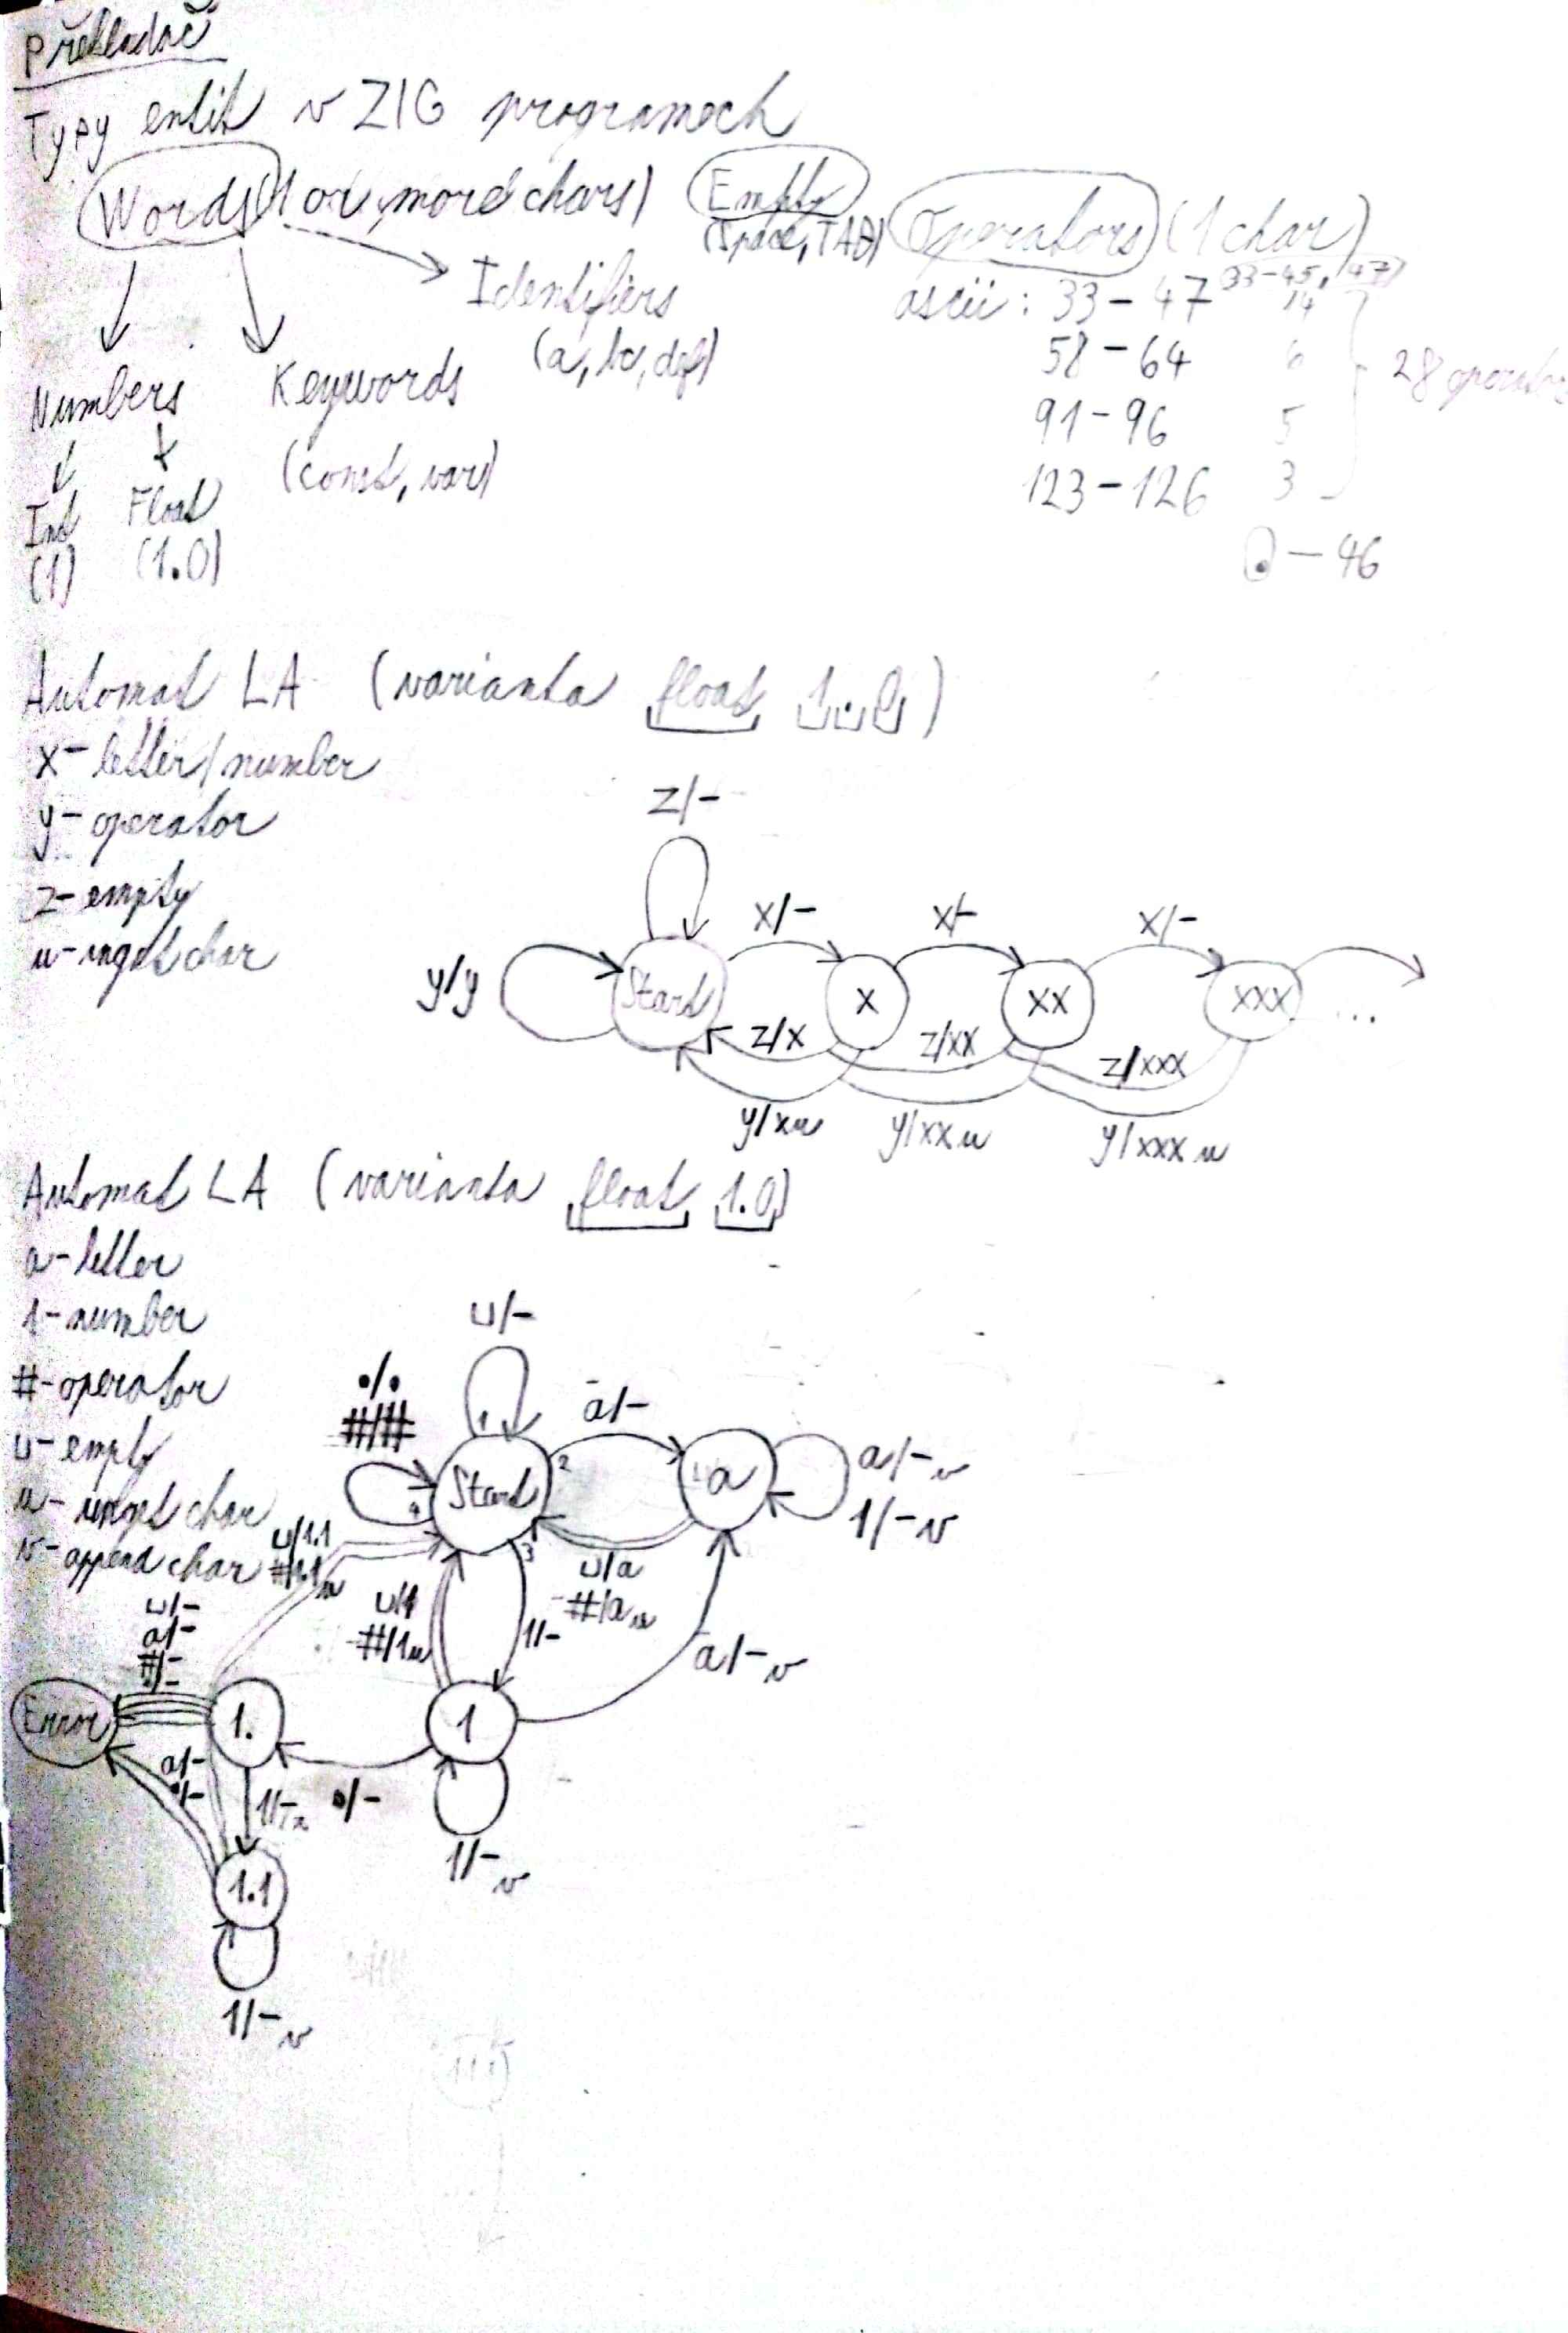 Překladač
Typy entit v ZIG programech
Words (1 or more chars) Empty (Space, TAB) Operators (1 char)
Identifiers (a, bc, def)
Numbers Keywords (const, var)
Int (1) Float (1.0)
ascii: 33-47 33-45, 47 14
58-64 6
91-96 5
123-126 3
28
. - 46
Automat LA (varianta float 1.0)
x - letter/number
y - operator
z - empty
u - unget char
z/-
y/y Start x/- x x/- xx x/- xxx ...
z/x z/xx z/xxx
y/xu y/xxu y/xxxu
Automat LA (varianta float 1.0)
a - letter
1 - number
# - operator
␣ - empty
u - unget char
v - append char
␣/-
./.
#/#
1 2 3 4
Start a/- a a/-v
1/-v
␣/1.1
#/1.1u
␣/a
#/au
␣/1
#/1u
1/-
a/-v
␣/-
a/-
#/-
./-
Error 1. ./- 1
a/-
./-
1/-v
1.1
1/-v